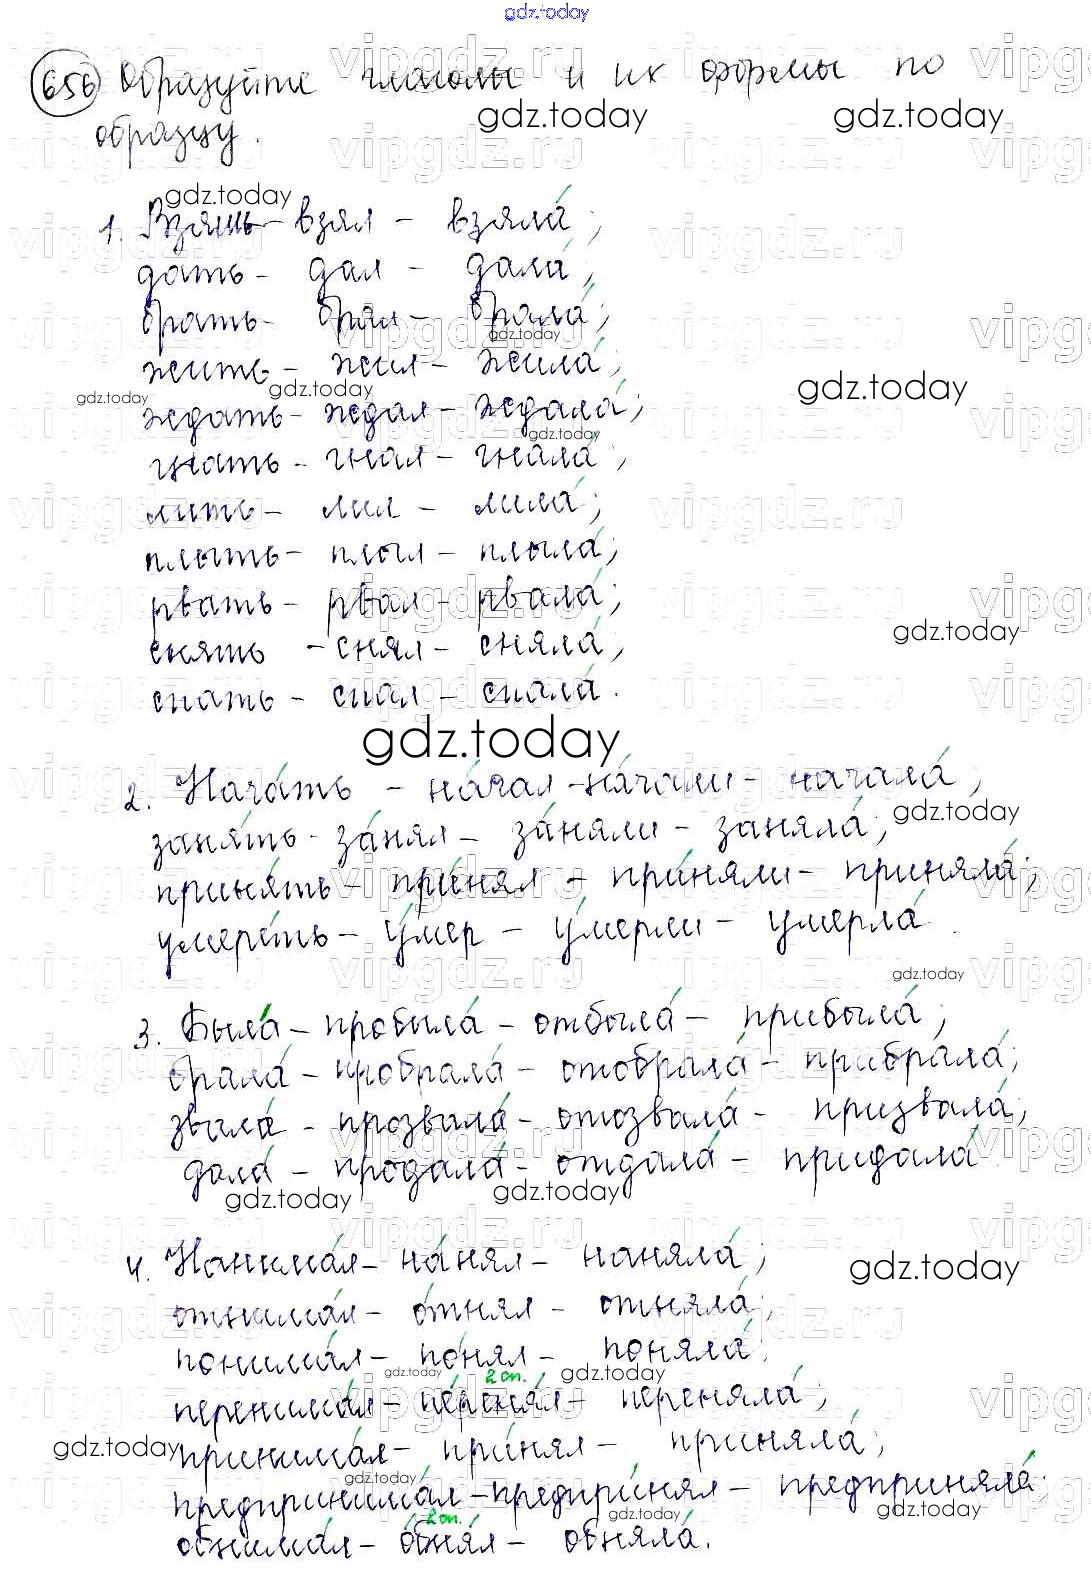 gdz.today
656 Образуйте глаголы и их формы по
образцу.
1. Взять - взял - взяла́;
дать - дал - дала́;
брать - брал - брала́;
жить - жил - жила́;
ждать - ждал - ждала́;
гнать - гнал - гнала́;
лить - лил - лила́;
плыть - плыл - плыла́;
рвать - рвал - рвала́;
снять - снял - сняла́;
спать - спал - спала́.
2. Нача́ть - на́чал - на́чали - начала́;
заня́ть - за́нял - за́няли - заняла́;
приня́ть - при́нял - при́няли - приняла́;
умере́ть - у́мер - у́мерли - умерла́.
3. Была́ - пробыла́ - отбыла́ - прибыла́;
брала́ - пробрала́ - отобрала́ - прибрала́;
звала́ - прозвала́ - отозвала́ - призвала́;
дала́ - продала́ - отдала́ - придала́
4. Нанима́л - на́нял - наняла́;
отнима́л - о́тнял - отняла́;
понима́л - по́нял - поняла́;
2 сп.
перенима́л - пе́реня́л - переняла́;
принима́л - при́нял - приняла́;
предпринима́л - предпри́нял - предприняла́;
2 сп.
обнима́л - о́бня́л - обняла́.